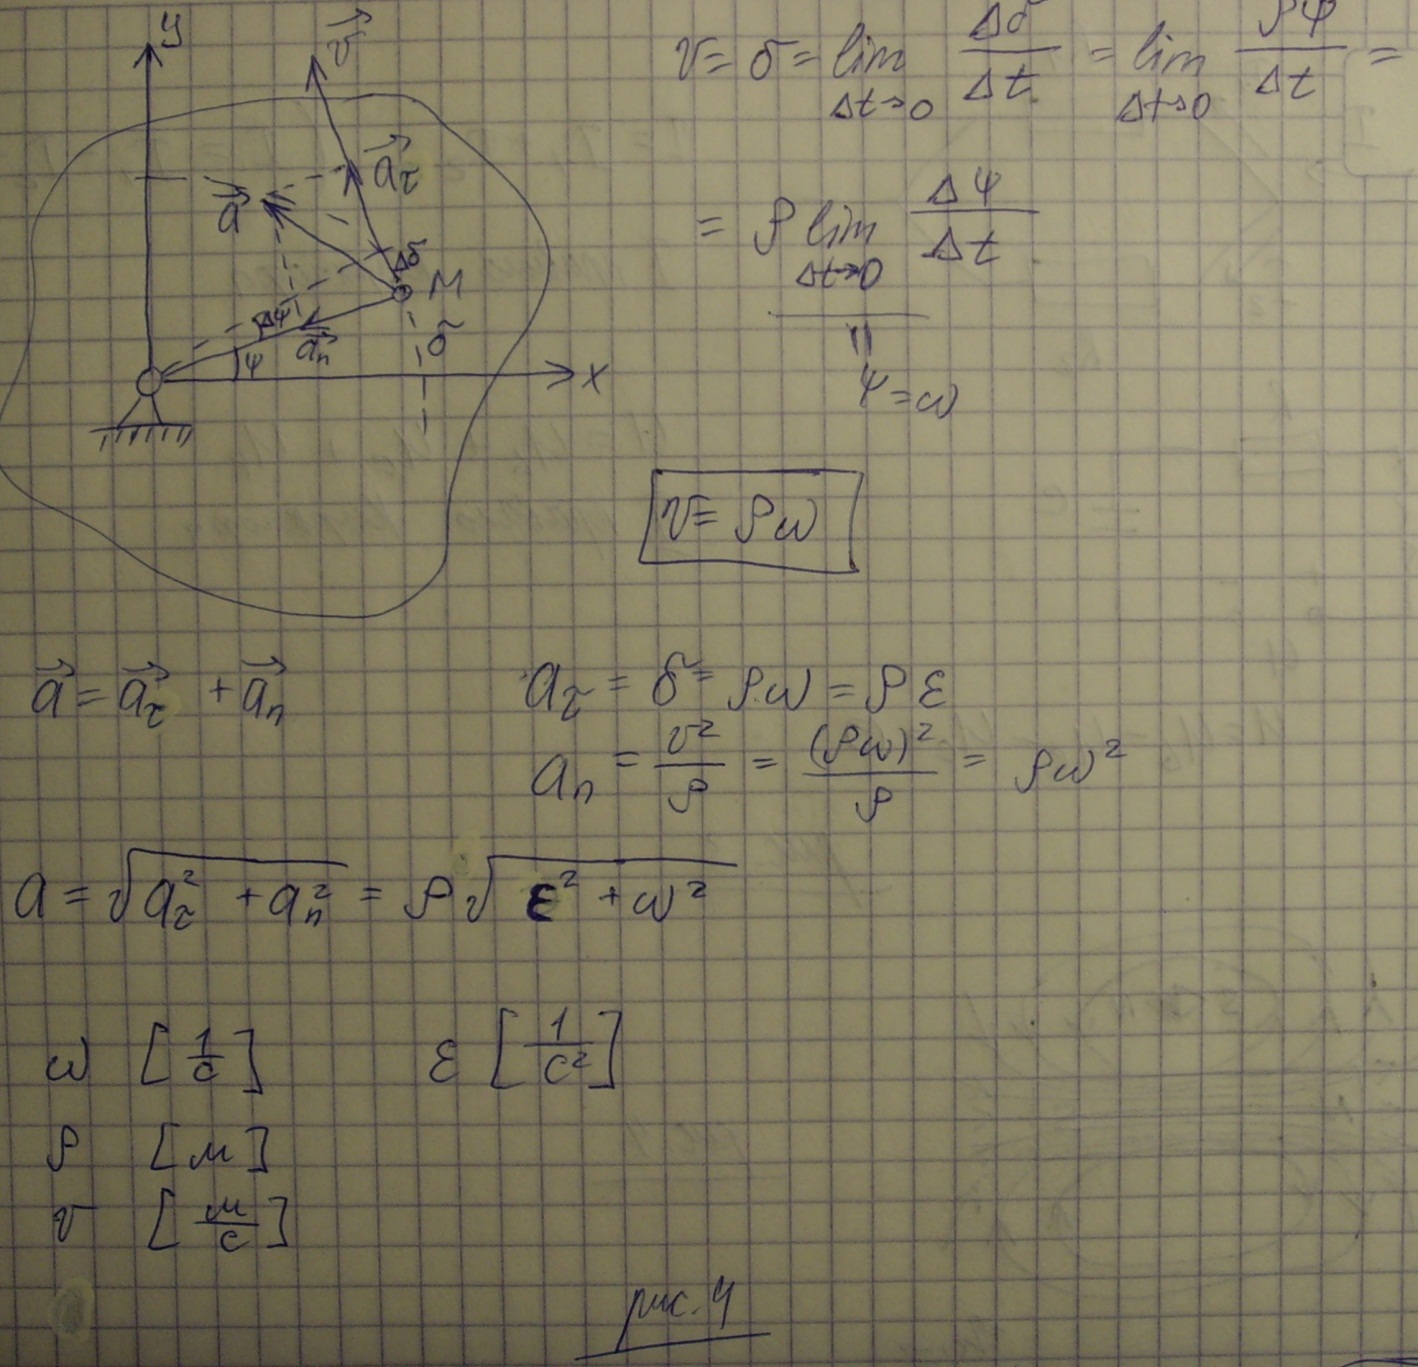 y
v⃗
a⃗τ
a⃗
Δσ
M
Δψ
a⃗n
ψ
σ
x
v = σ = lim Δt→0 Δσ/Δt = lim Δt→0 ρψ/Δt =
= ρ lim Δt→0 Δψ/Δt
||
ψ = ω
v = ρω
a⃗ = a⃗τ + a⃗n
aτ = σ = ρω = ρε
an = v²/ρ = (ρω)²/ρ = ρω²
a = √(aτ² + an²) = ρ√(ε² + ω²)
ω [1/с] ε [1/с²]
ρ [м]
v [м/с]
рис. 4